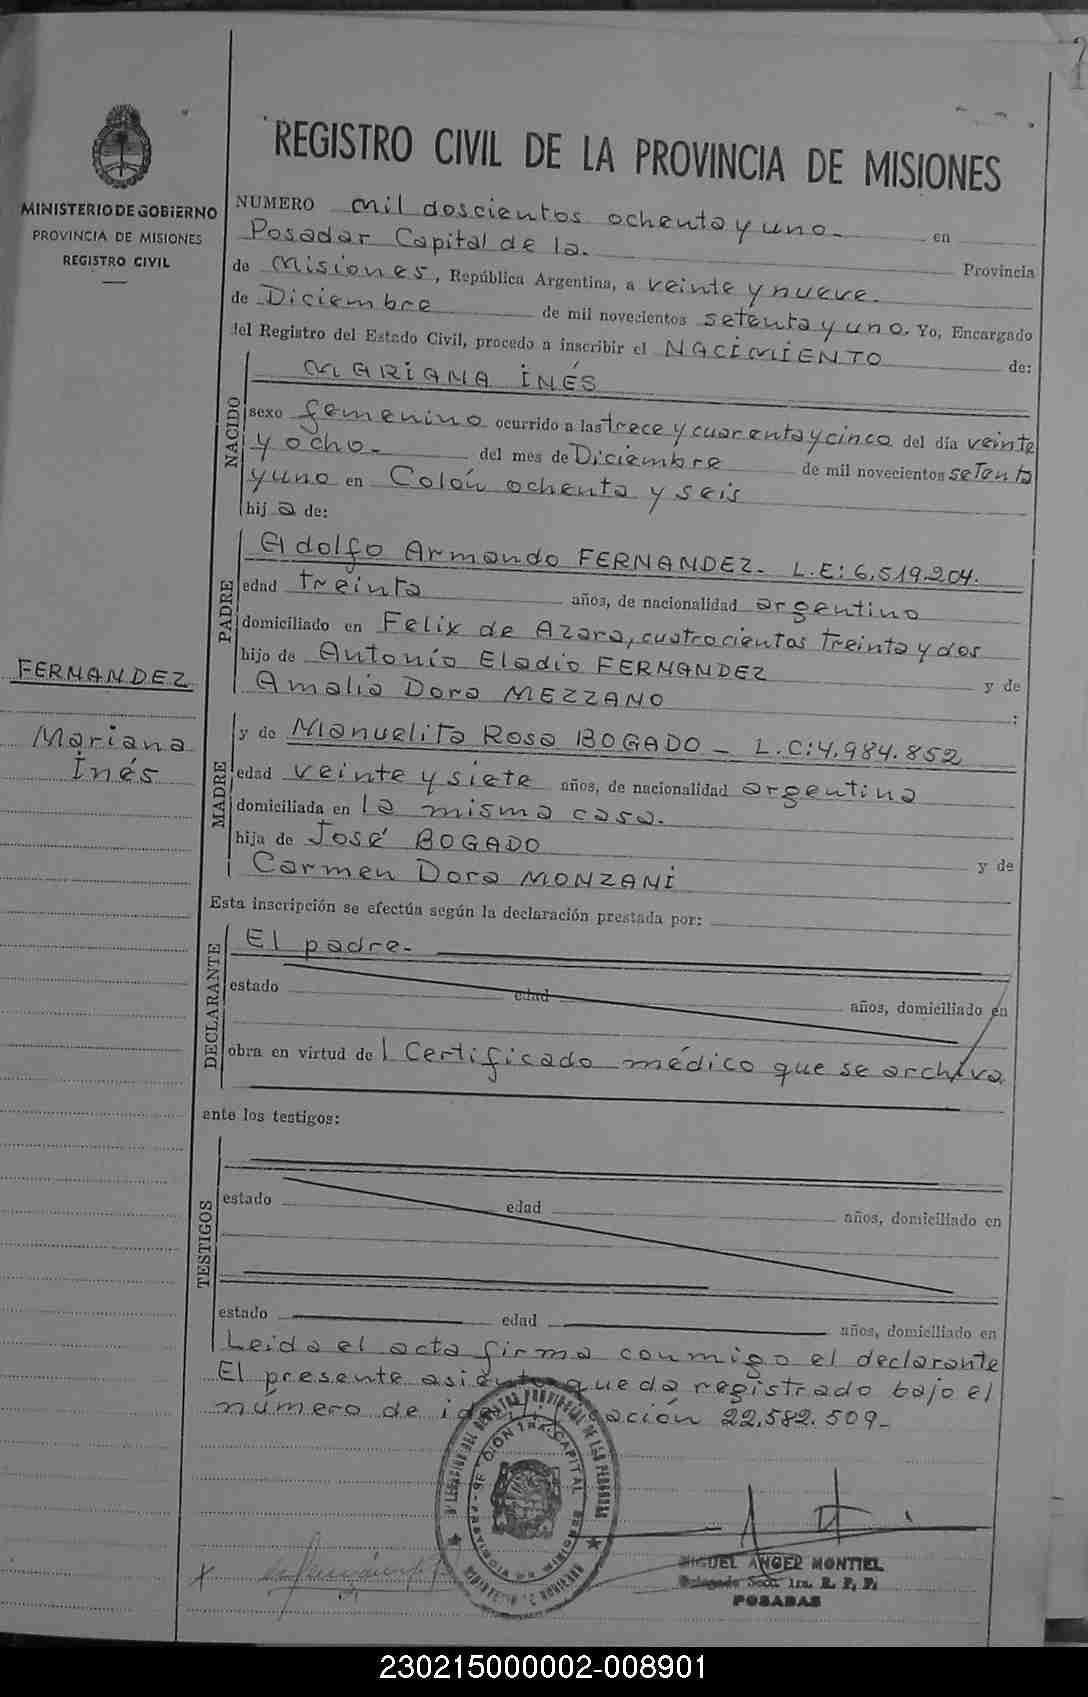 REGISTRO CIVIL DE LA PROVINCIA DE MISIONES
MINISTERIO DE GOBIERNO
PROVINCIA DE MISIONES
REGISTRO CIVIL
NUMERO mil doscientos ochenta y uno.- en
Posadas Capital de la. Provincia
de Misiones, República Argentina, a veinte y nueve.
de Diciembre de mil novecientos setenta y uno. Yo, Encargado
del Registro del Estado Civil, procedo a inscribir el NACIMIENTO de:
NACIDO
MARIANA INÉS
sexo femenino ocurrido a las trece y cuarenta y cinco del día veinte
y ocho.- del mes de Diciembre de mil novecientos setenta
y uno en Colón ochenta y seis
hij a de:
PADRE
Adolfo Armando FERNANDEZ.- L.E: 6.519.204.
edad treinta años, de nacionalidad argentino
domiciliado en Felix de Azara, cuatrocientos treinta y dos
hijo de Antonio Eladio FERNANDEZ y de
Amalia Dora MEZZANO :
FERNANDEZ
Mariana
Inés
MADRE
y de Manuelita Rosa BOGADO - L.C: 4.984.852
edad veinte y siete años, de nacionalidad argentina
domiciliada en la misma casa.
hija de José BOGADO y de
Carmen Dora MONZANI
Esta inscripción se efectúa según la declaración prestada por:
DECLARANTE
El padre.-
estado edad años, domiciliado en
obra en virtud de l Certificado médico que se archiva
ante los testigos:
TESTIGOS
estado edad años, domiciliado en
estado edad años, domiciliado en
Leida el acta firma conmigo el declarante
El presente asiento queda registrado bajo el
número de identificación 22.582.509-
MIGUEL ANGEL MONTIEL
Delegado Secc. 1ra. R. P. P.
POSADAS
230215000002-008901